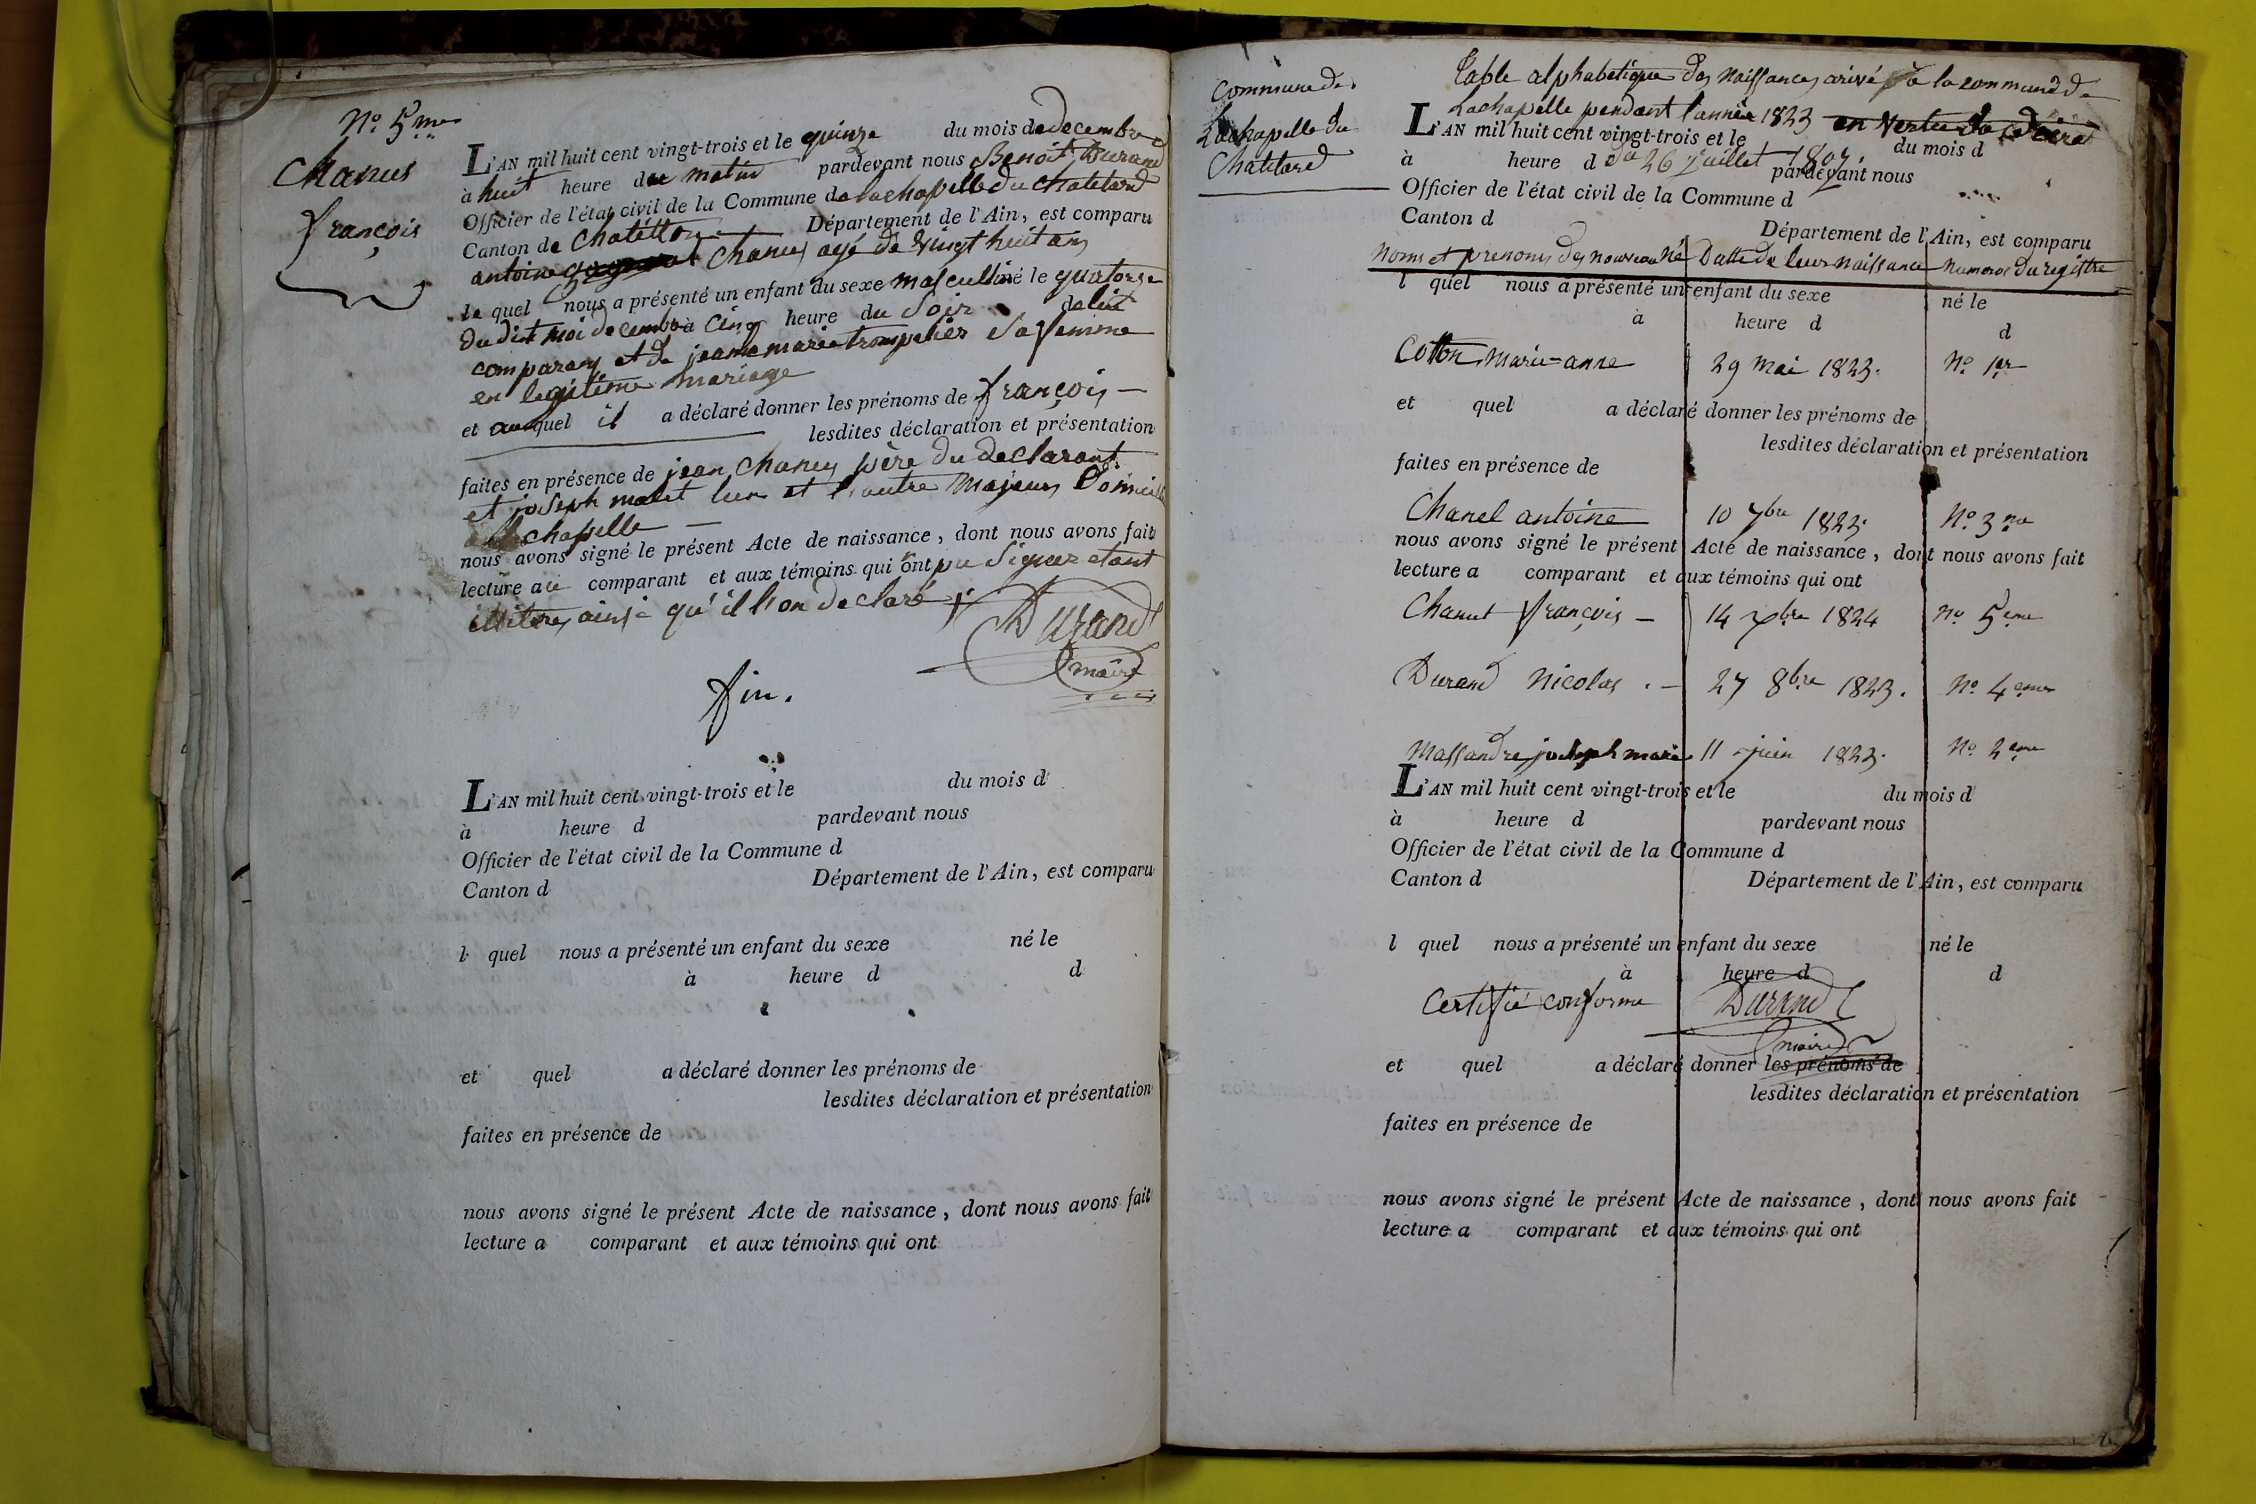 No. 5me
Chanus
françois
L'AN mil huit cent vingt-trois et le quinze du mois de decembre
à huit heure du matin pardevant nous Benoit Durand
Officier de l'état civil de la Commune de lachapelle du chatelard
Canton de Chatillon Département de l'Ain, est comparu
antoine Chanus agé de vingt huit ans
le quel nous a présenté un enfant du sexe masculin né le quatorze
du dit moi decembre à cinq heure du soir de lui
comparans et de jeanne marie trompelier sa femme
en legitime mariage
et auquel il a déclaré donner les prénoms de françois
lesdites déclaration et présentation
faites en présence de jean Chanus père du declarant
et joseph lun et l'autre majeurs Domicil
a la chapelle
nous avons signé le présent Acte de naissance, dont nous avons fait
lecture au comparant et aux témoins qui ont pu signer etant
illitere ainsi qu'il l'on declaré
Durand
maire
fin.
L'AN mil huit cent vingt-trois et le du mois d
à heure d pardevant nous
Officier de l'état civil de la Commune d
Canton d Département de l'Ain, est comparu
l quel nous a présenté un enfant du sexe né le
à heure d d
et quel a déclaré donner les prénoms de
lesdites déclaration et présentation
faites en présence de
nous avons signé le présent Acte de naissance, dont nous avons fait
lecture a comparant et aux témoins qui ont
Commune de
Lachapelle du
Chatelard
Table alphabetique des naissances arivé a la commune de
Lachapelle pendant l'année 1823 en vertu du décret
L'AN mil huit cent vingt-trois et le du mois d
du 26 juillet 1807.
à heure d pardevant nous
Officier de l'état civil de la Commune d
Canton d Département de l'Ain, est comparu
Noms et prenoms des nouveau né Datte de leur naissance numeros du registre
l quel nous a présenté un enfant du sexe né le
à heure d d
Cotton marie=anne 29 mai 1823. No. 1er
et quel a déclaré donner les prénoms de
lesdites déclaration et présentation
faites en présence de
Chanel antoine 10 7bre 1823. No. 3me
nous avons signé le présent Acte de naissance, dont nous avons fait
lecture a comparant et aux témoins qui ont
Chanut françois 14 xbre 1824 No. 5eme
Durand Nicolas 27 8bre 1823. No. 4eme
Massandre joseph marie 11 juin 1823. No. 2eme
L'AN mil huit cent vingt-trois et le du mois d
à heure d pardevant nous
Officier de l'état civil de la Commune d
Canton d Département de l'Ain, est comparu
l quel nous a présenté un enfant du sexe né le
à heure d d
Certifié conforme Durand
maire
et quel a déclaré donner les prénoms de
lesdites déclaration et présentation
faites en présence de
nous avons signé le présent Acte de naissance, dont nous avons fait
lecture a comparant et aux témoins qui ont